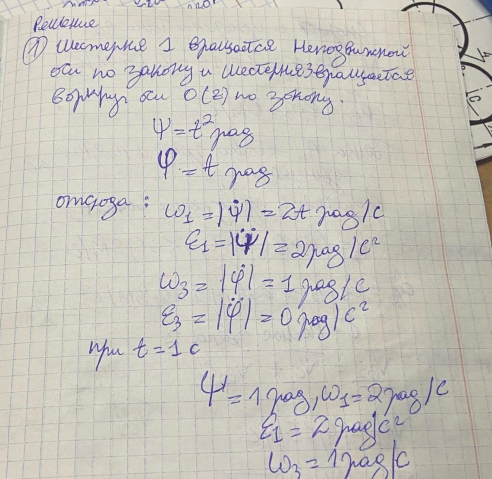 Решение
① Шестерня 1 вращается неподвижной
оси по закону и шестерня 3 вращается
вокруг оси O(z) по закону.
Ψ = t² рад
φ = t рад
отсюда: ω₁ = |Ψ̇| = 2t рад/с
ε₁ = |Ψ̈| = 2 рад/с²
ω₃ = |φ̇| = 1 рад/с
ε₃ = |φ̈| = 0 рад/с²
при t = 1 с
Ψ = 1 рад, ω₁ = 2 рад/с
ε₁ = 2 рад/с²
ω₃ = 1 рад/с